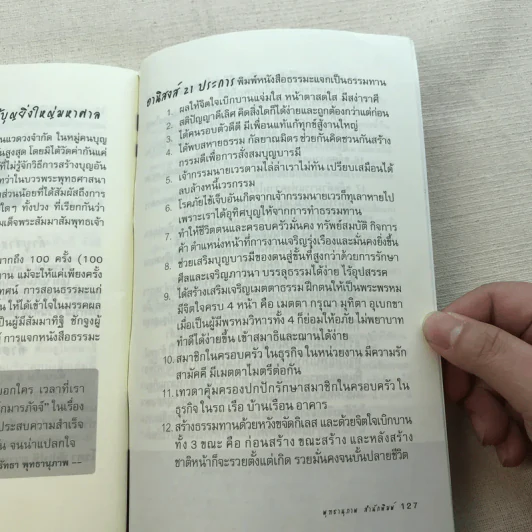 บุญยิ่งใหญ่มหาศาล
นแวดวงจำกัด ในหมู่คนบุญ
ที่ไม่รู้จักวิธีการสร้างบุญอัน
ว่าในบวรพระพุทธศาสนา
ส่วนน้อยที่ได้สัมผัสถึงการ
ใดๆ ทั้งปวง ที่เรียกกันว่า
มากถึง 100 ครั้ง (100
ทาน แม้จะให้แค่เพียงครั้ง
เทศน์ การสอนธรรมะแก่
ให้ได้เข้าใจในมรรคผล
เป็นผู้มีสัมมาทิฐิ ชักจูงผู้
การแจกหนังสือธรรมะ
บอกใคร เวลาที่เรา
ในเรื่อง
ประสบความสำเร็จ
น จนน่าแปลกใจ
พุทธานุภาพ --
อานิสงส์ 21 ประการ พิมพ์หนังสือธรรมะแจกเป็นธรรมทาน
1. ผลให้จิตใจเบิกบานแจ่มใส หน้าตาสดใส มีสง่าราศี
2. สติปัญญาดีเลิศ คิดสิ่งใดก็ได้ง่ายและถูกต้องกว่าแต่ก่อน
3. ได้คนรอบตัวดีดี มีเพื่อนแท้แก้ทุกข์สู้งานใหญ่
4. ได้พบสหายธรรม กัลยาณมิตร ช่วยกันคิดชวนกันสร้าง
กรรมดีเพื่อการสั่งสมบุญบารมี
5. เจ้ากรรมนายเวรตามไล่ล่าเราไม่ทัน เปรียบเสมือนได้
ลบล้างหนี้เวรกรรม
6. โรคภัยไข้เจ็บอันเกิดจากเจ้ากรรมนายเวรก็ทุเลาหายไป
เพราะเราได้อุทิศบุญให้จากการทำธรรมทาน
7. ทำให้ชีวิตตนและครอบครัวมั่นคง ทรัพย์สมบัติ กิจการ
ค้า ตำแหน่งหน้าที่การงานเจริญรุ่งเรืองและมั่นคงยิ่งขึ้น
8. ช่วยเสริมบุญบารมีของตนสู่ขั้นที่สูงกว่าด้วยการรักษา
ศีลและเจริญภาวนา บรรลุธรรมได้ง่าย ไร้อุปสรรค
9. ได้สร้างเสริมเจริญเมตตาธรรม ฝึกตนให้เป็นพระพรหม
มีจิตใจครบ 4 หน้า คือ เมตตา กรุณา มุทิตา อุเบกขา
เมื่อเป็นผู้มีพรหมวิหารทั้ง 4 ก็ย่อมให้อภัย ไม่พยาบาท
ทำดีได้ง่ายขึ้น เข้าสมาธิและฌานได้ง่าย
10. สมาชิกในครอบครัว ในธุรกิจ ในหน่วยงาน มีความรัก
สามัคคี มีเมตตาไมตรีต่อกัน
11. เทวดาคุ้มครองปกปักรักษาสมาชิกในครอบครัว ใน
ธุรกิจ ในรถ เรือ บ้านเรือน อาคาร
12. สร้างธรรมทานด้วยหวังขจัดกิเลส และด้วยจิตใจเบิกบาน
ทั้ง 3 ขณะ คือ ก่อนสร้าง ขณะสร้าง และหลังสร้าง
ชาติหน้าก็จะรวยตั้งแต่เกิด รวยมั่นคงจนบั้นปลายชีวิต
พุทธานุภาพ สำนักพิมพ์ 127